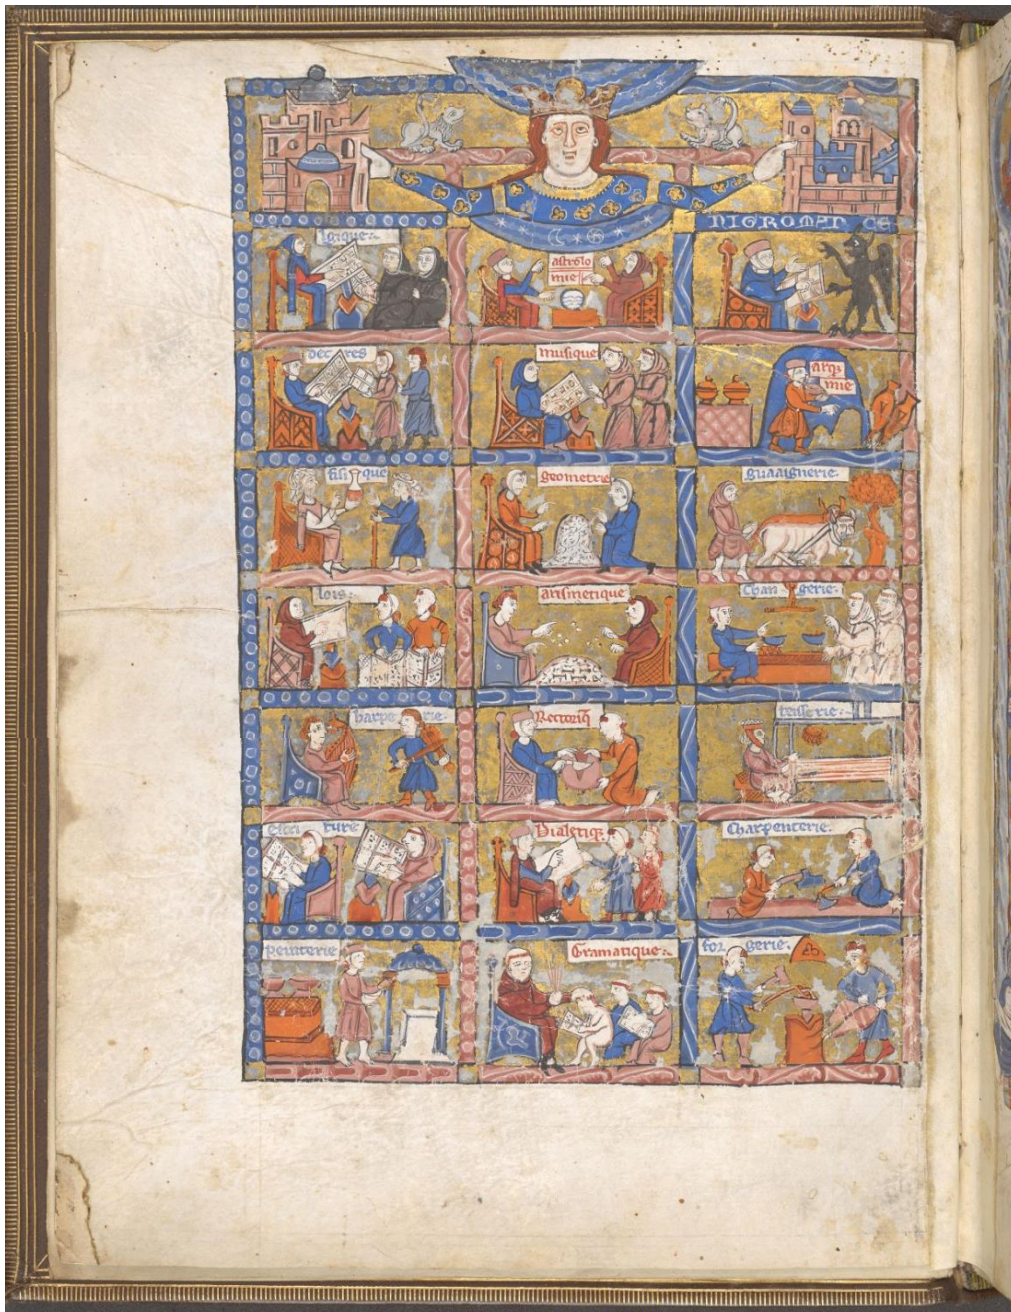 NIGROMANCE
loique
astrolo
mie
decres
musique
arq
mie
fisique
geometrie
guaaignerie
lois
arismetique
Changerie
harperie
Rectoriq
teisserie
Escriture
Dialetiq
Charpenterie
peinterie
Gramatique
forgerie